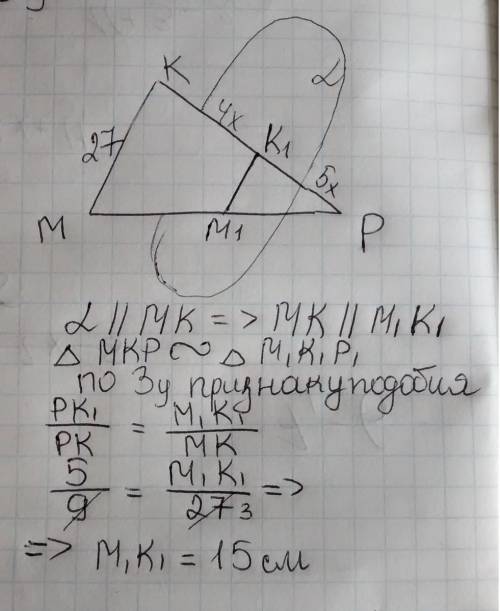 K
α
4x
27
K₁
5x
M
M₁
P
α // MK => MK // M₁K₁
△ MKP ∼ △ M₁K₁P₁
по 3у признаку подобия
PK₁/PK = M₁K₁/MK
5/9 = M₁K₁/27 3 =>
=> M₁K₁ = 15 см